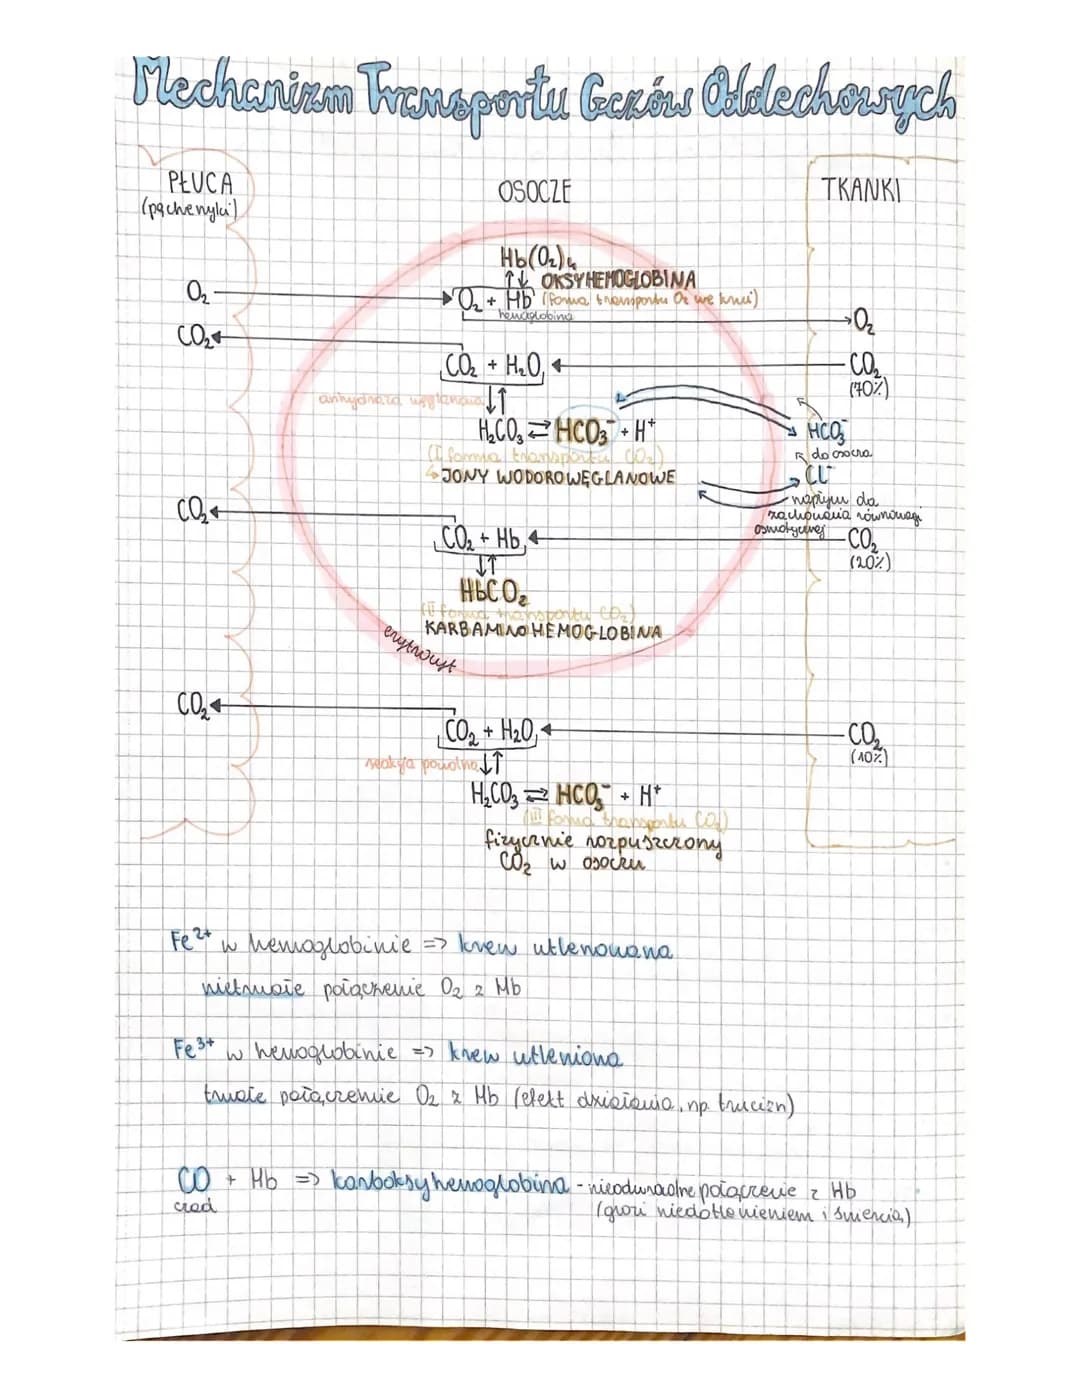 Mechanizm Transportu Gazów Oddechowych
PŁUCA
(pęcherzyki)
OSOCZE
TKANKI
Hb(O₂)₄
↑↓ OKSYHEMOGLOBINA
O₂
O₂ + Hb (forma transportu O₂ we krwi)
hemoglobina
O₂
CO₂
CO₂ + H₂O
CO₂
(70%)
anhydraza węglanowa ↓↑
H₂CO₃ ⇄ HCO₃⁻ + H⁺
HCO₃⁻
do osocza
(I forma transportu CO₂)
↳ JONY WODOROWĘGLANOWE
Cl⁻
napływ do
zachowania równowagi
osmotycznej
CO₂
CO₂ + Hb
CO₂
(20%)
↓↑
HbCO₂
(II forma transportu CO₂)
KARBAMINOHEMOGLOBINA
erytrocyt
CO₂
CO₂ + H₂O
CO₂
(10%)
reakcja powolna ↓↑
H₂CO₃ ⇄ HCO₃⁻ + H⁺
(III forma transportu CO₂)
fizycznie rozpuszczony
CO₂ w osoczu
Fe²⁺ w hemoglobinie => krew utlenowana
nietrwałe połączenie O₂ z Hb
Fe³⁺ w hemoglobinie => krew utleniona
trwałe połączenie O₂ z Hb (efekt działania, np. trucizn)
CO + Hb => karboksyhemoglobina - nieodwracalne połączenie z Hb
czad
(grozi niedotlenieniem i śmiercią)